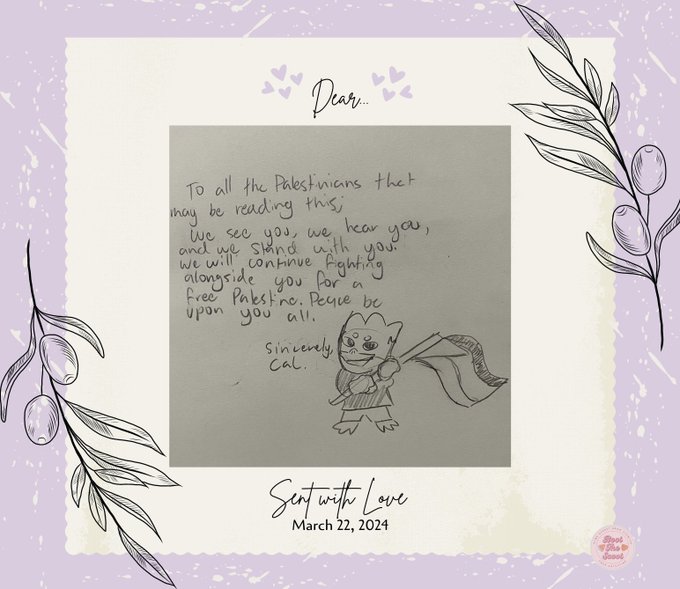 Dear...
To all the Palestinians that
may be reading this;
We see you, we hear you,
and we stand with you.
we will continue fighting
alongside you for a
free Palestine. Peace be
upon you all.
Sincerely,
Cal.
Sent with Love
March 22, 2024